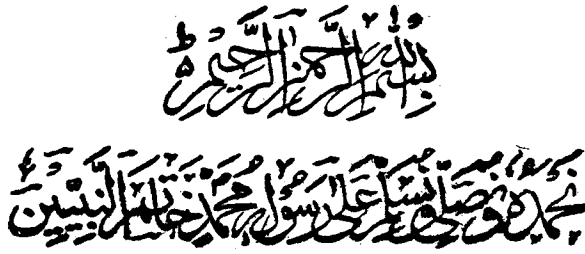 بسم الله الرحمن الرحيم
نحمده و نصلی و نسلم علی رسوله محمد خاتم النبیین